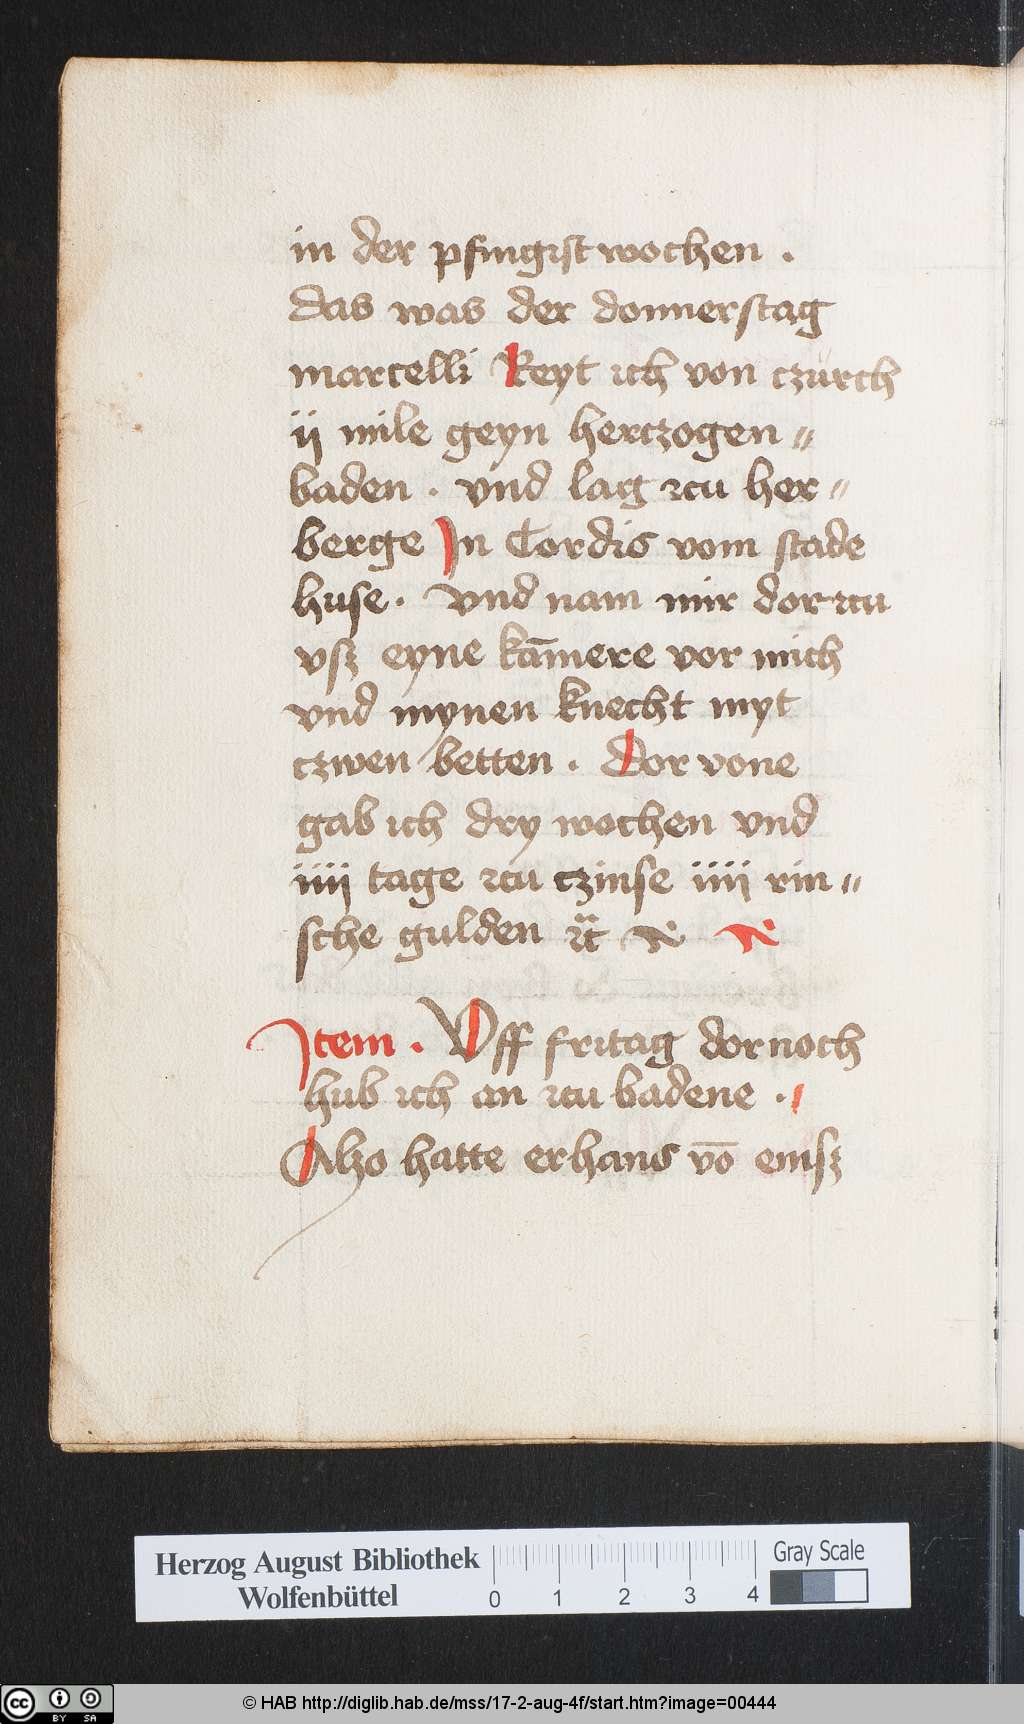 in der pfingistwochen .
das was der donnerstag
marcelli Reyt ich von czürch
ij mile geyn herczogen〃
baden . vnd lag zcu her〃
berge In Cordis vom stade
huse . vnd nam mir dorzcu
vsz eyne kām̄ere vor mich
vnd mynen knecht myt
czwen betten . Dor vone
gab ich dry wochen vnd
iiij tage zcu czinse iiij rin〃
sche gulden
Item . Vff fritag dornoch
hub ich an zcu badene .
Alzo hatte er hans vō emsz
Herzog August Bibliothek
Wolfenbüttel
0 1 2 3 4
Gray Scale
cc BY SA
© HAB http://diglib.hab.de/mss/17-2-aug-4f/start.htm?image=00444